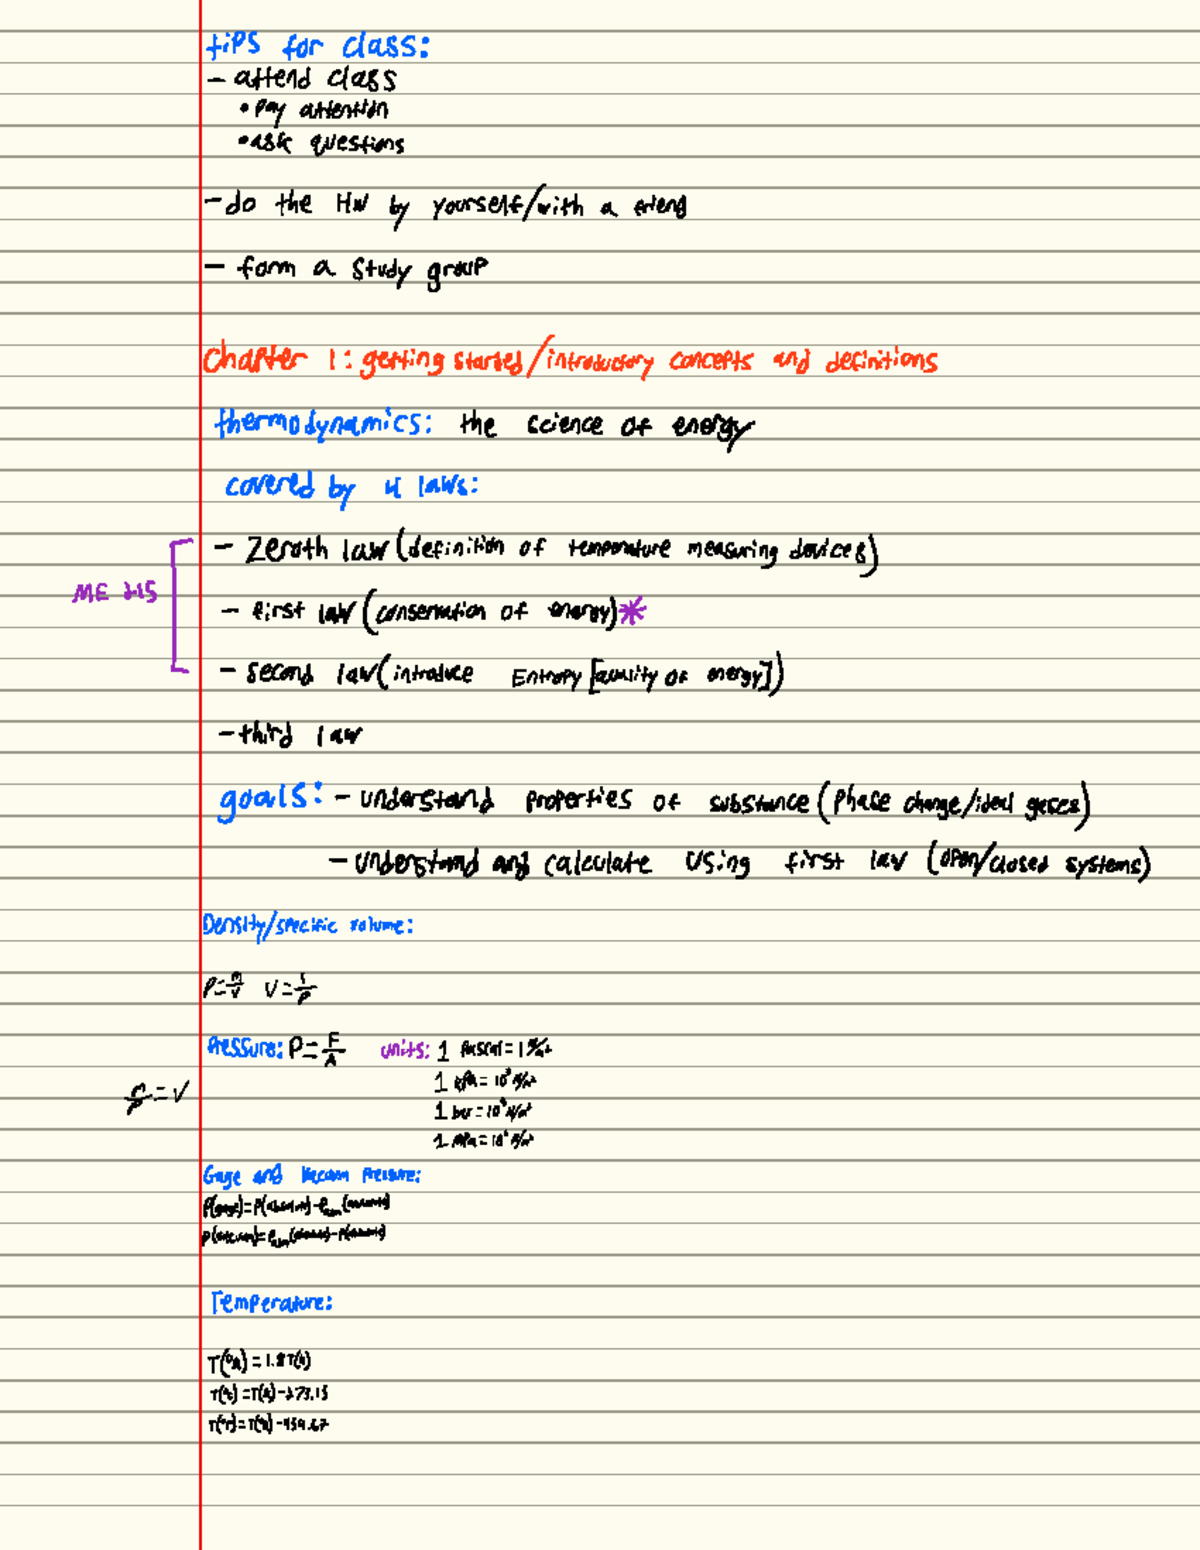 tips for class:
- attend class
• pay attention
• ask questions
- do the HW by yourself/with a friend
- form a study group
Chapter 1: getting started/introductory concepts and definitions
thermodynamics: the science of energy
covered by 4 laws:
- Zeroth law (definition of temperature measuring devices)
ME 215
- first law (conservation of energy)*
- second law (introduce Entropy [quality of energy])
- third law
goals: - understand properties of substance (phase change/ideal gases)
- understand and calculate using first law (open/closed systems)
Density/specific volume:
ρ=m/V v=1/ρ
Pressure: P=F/A units: 1 Pascal = 1 N/m²
1 kPa = 10³ N/m²
=V
1 bar = 10⁵ N/m²
1 MPa = 10⁶ N/m²
Gage and Vacuum Pressure:
P(gage)=P(absolute)-Patm(absolute)
P(vacuum)=Patm(absolute)-P(absolute)
Temperature:
T(°R) = 1.8T(K)
T(°C) = T(K) - 273.15
T(°F) = T(°R) - 459.67